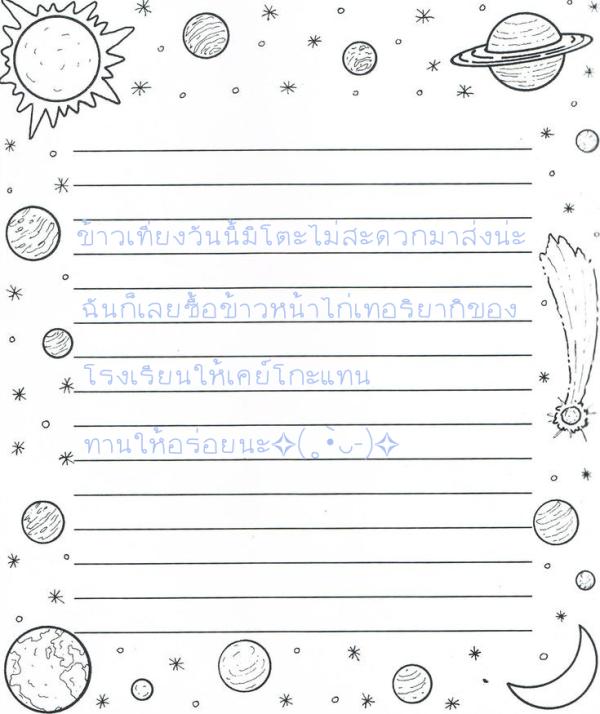 ข้าวเที่ยงวันนี้มิโตะไม่สะดวกมาส่งน่ะ
ฉันก็เลยซื้อข้าวหน้าไก่เทอริยากิของ
โรงเรียนให้เคย์โกะแทน
ทานให้อร่อยนะ✧(｡•̀ᴗ-)✧